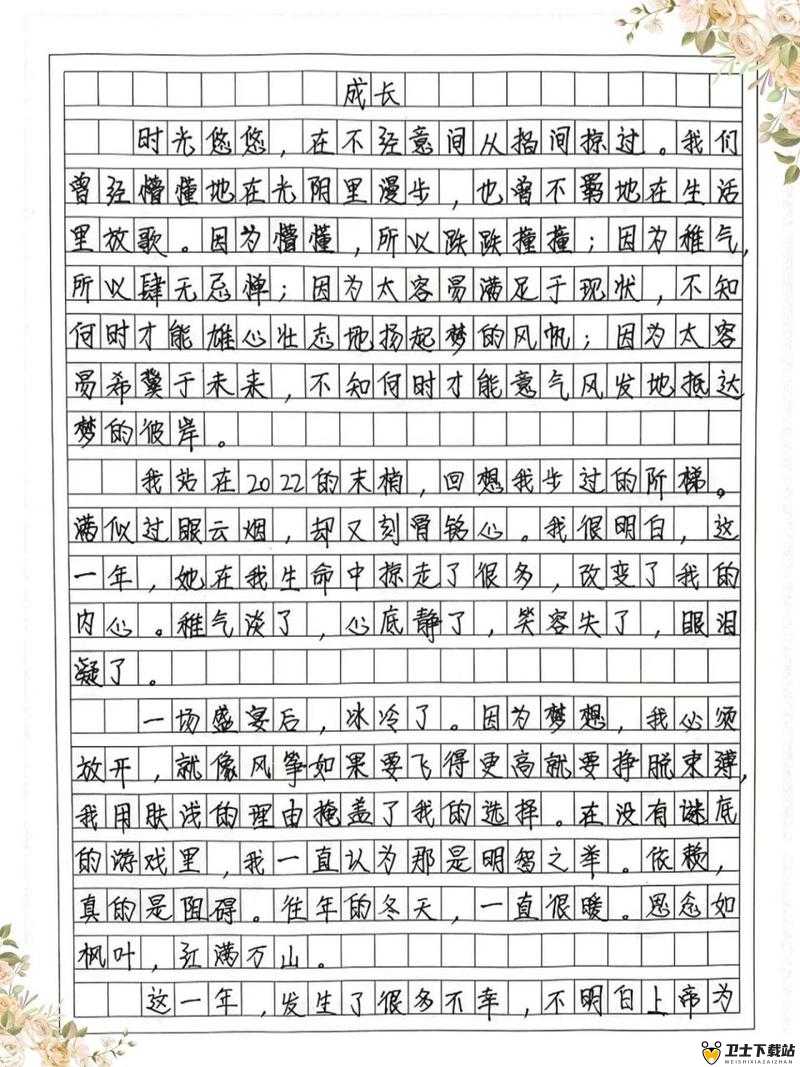 成长
时光悠悠，在不经意间从指间掠过。我们
曾经懵懂地在光阴里漫步，也曾不羁地在生活
里放歌。因为懵懂，所以跌跌撞撞；因为稚气，
所以肆无忌惮；因为太容易满足于现状，不知
何时才能雄心壮志地扬起梦的风帆；因为太容
易希冀于未来，不知何时才能意气风发地抵达
梦的彼岸。
我站在2022的末梢，回想我步过的阶梯。
满似过眼云烟，却又刻骨铭心。我很明白，这
一年，她在我生命中掠走了很多，改变了我的
内心。稚气淡了，心底静了，笑容失了，眼泪
凝了。
一场盛宴后，冰冷了。因为梦想，我必须
放开，就像风筝如果要飞得更高就要挣脱束薄，
我用肤浅的理由掩盖了我的选择。在没有谜底
的游戏里，我一直认为那是明智之举。依赖，
真的是阻碍。往年的冬天，一直很暖。思念如
枫叶，红满万山。
这一年，发生了很多不幸，不明白上帝为
卫士下载站
WEISHIXIAZAIZHAN